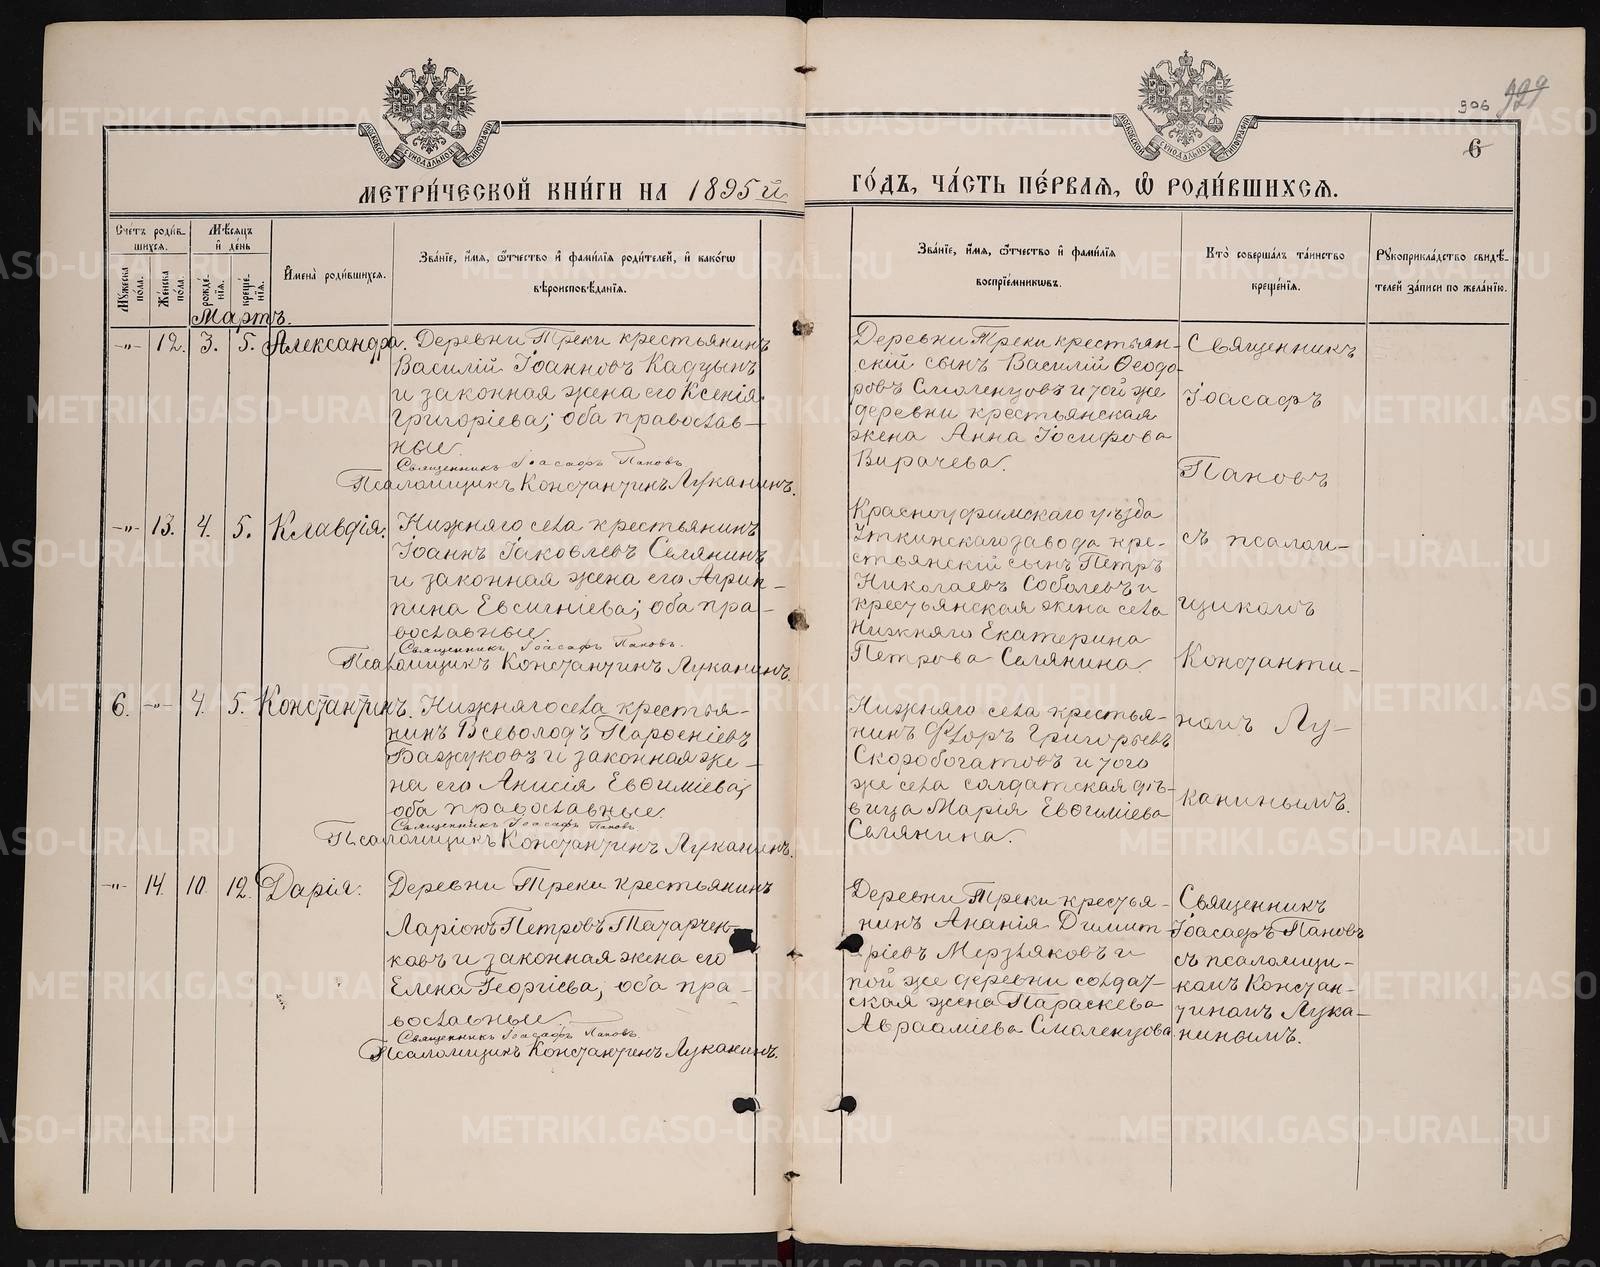 906 929
6
МОСКОВСКОЙ СѴНОДАЛЬНОЙ ТИПОГРАФІИ
МОСКОВСКОЙ СѴНОДАЛЬНОЙ ТИПОГРАФІИ
МЕТРИ́ЧЕСКОЙ КНИ́ГИ НА 1895й
ГО́ДЪ, ЧА́СТЬ ПЕ́РВАѦ, Ѡ҆ РОДИ́ВШИХСѦ.
Сче́тъ роди́в-
шихсѧ.
Мꙋ́жеска по́ла.
Же́нска по́ла.
Мѣ́сѧцъ
и҆ де́нь
рожде́-нїѧ.
креще́-нїѧ.
И҆мена̀ роди́вшихсѧ.
Зва́нїе, и҆́мѧ, ѻ҆́тчество и҆ фами́лїѧ роди́телей, и҆ како́гѡ
вѣроисповѣ́данїѧ.
Зва́нїе, и҆́мѧ, ѻ҆́тчество и҆ фами́лїѧ
воспрїе́мникѡвъ.
Кто̀ соверша́лъ та́инство
креще́нїѧ.
Рꙋкоприкла́дство свидѣ́-
телей за́писи по жела́нїю.
Мартъ.
-"- 12. 3. 5. Александра.
Деревни Треки крестьянинъ
Василій Іоанновъ Кадцынъ
и законная жена его Ксенія
Григоріева; оба православ-
ные.
Священникъ Іоасафъ Пановъ
Псаломщикъ Константинъ Луканинъ.
Деревни Треки крестьян-
скій сынъ Василій Ѳеодо-
ровъ Смоленцовъ и той же
деревни крестьянская
жена Анна Іосифова
Вирачева.
Священникъ
Іоасафъ
Пановъ
-"- 13. 4. 5. Клавдія.
Нижняго села крестьянинъ
Іоаннъ Іаковлевъ Селянинъ
и законная жена его Агрип-
пина Евсигніева; оба пра-
вославные
Священникъ Іоасафъ Пановъ.
Псаломщикъ Константинъ Луканинъ.
Красноуфимскаго уѣзда
Уткинскаго завода кре-
стьянскій сынъ Петръ
Николаевъ Соболевъ и
крестьянская жена села
Нижняго Екатерина
Петрова Селянина
съ псалом-
щикомъ
Константи-
6. -"- 4. 5. Константинъ.
Нижняго села крестья-
нинъ Всеволодъ Парѳеніевъ
Бажуковъ и законная же-
на его Анисія Евѳиміева;
оба православные.
Священникъ Іоасафъ Пановъ
Псаломщикъ Константинъ Луканинъ.
Нижняго села крестья-
нинъ Флоръ Григорьевъ
Скоробогатовъ и того
же села солдатская дѣ-
вица Марія Евѳиміева
Селянина.
номъ Лу-
канинымъ.
-"- 14. 10. 12. Дарія.
Деревни Треки крестьянинъ
Ларіонъ Петровъ Татарчен-
ковъ и законная жена его
Елена Георгіева; оба пра-
вославные.
Священникъ Іоасафъ Пановъ
Псаломщикъ Константинъ Луканинъ.
Деревни Треки крестья-
нинъ Ананія Димит-
ріевъ Мерзляковъ и
той же деревни солдат-
ская жена Параскева
Авраамиева Смоленцова
Священникъ
Іоасафъ Пановъ
съ псаломщи-
комъ Констан-
тиномъ Лука-
нинымъ.
METRIKI.GASO-URAL.RU